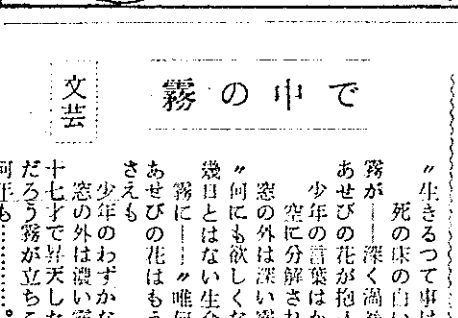 霧の中で
文芸
〃生きるつて事は
死の床の白い
霧が――深く渦巻
あせびの花が抱え
少年の言葉はか
空に分解され
窓の外は深い霧
〃何にも欲しくな
幾日とはない生命
霧に――〃唯何
あせびの花はもう
さえも
少年のわずかな
窓の外は濃い霧
十七才で昇天した
だろう霧が立ちこ
何年も………。